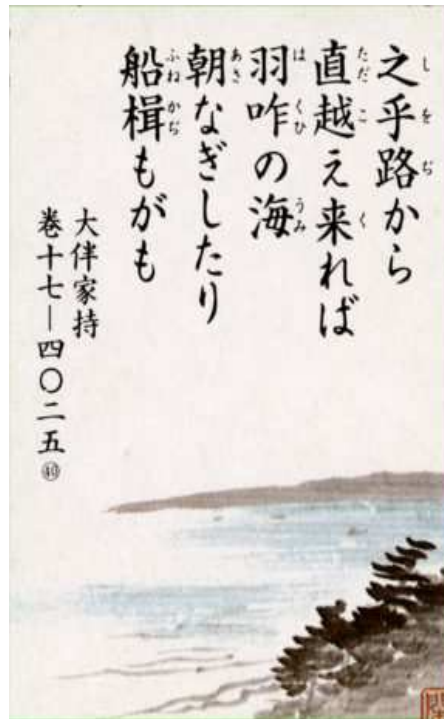 之乎路から
直越え来れば
羽咋の海
朝なぎしたり
船楫もがも
大伴家持
巻十七—四〇二五㊵